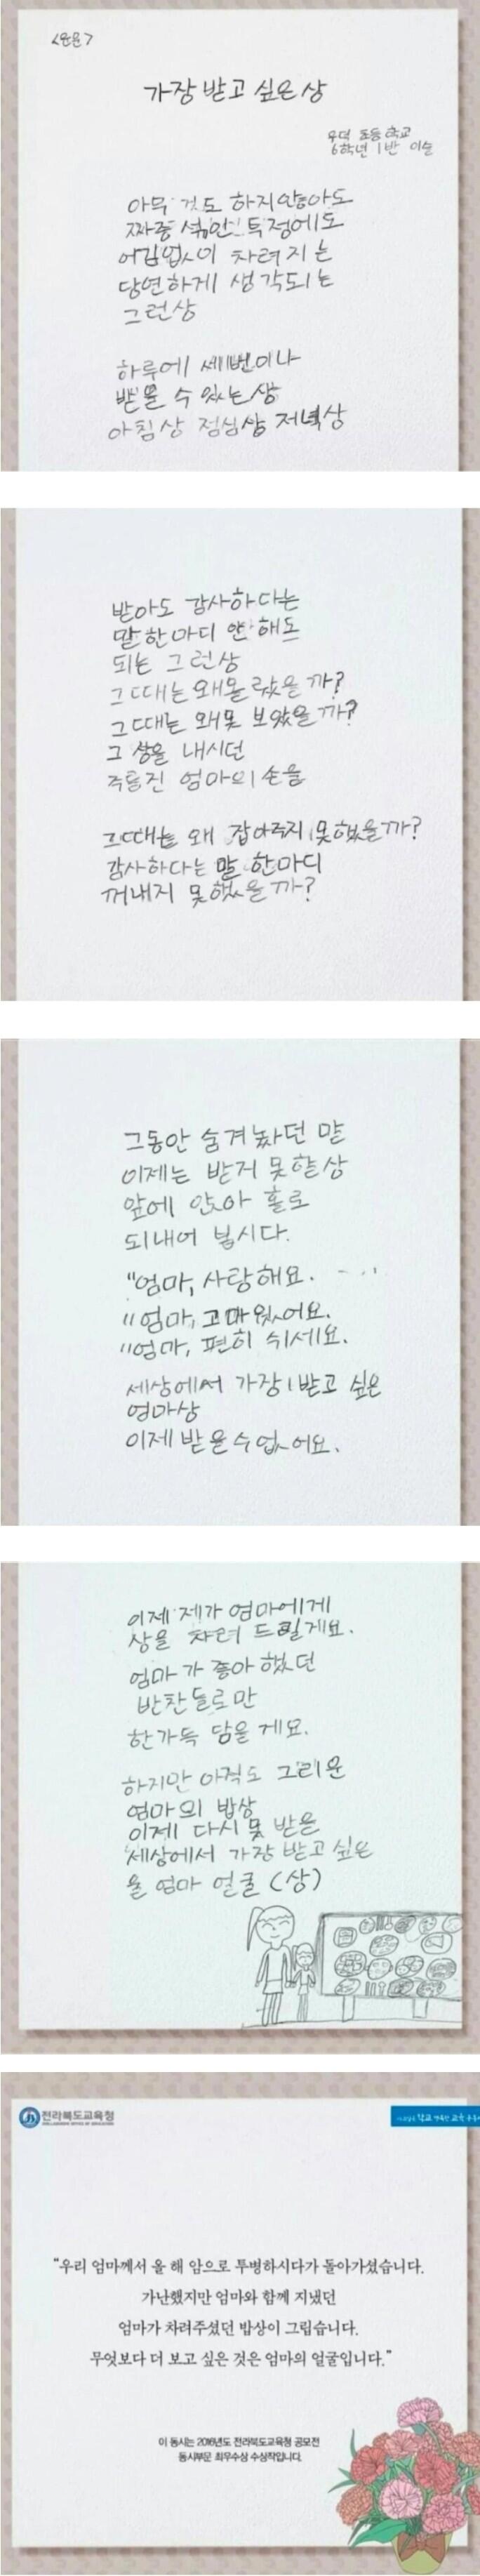 <운문>
가장 받고 싶은 상
우덕 초등 학교
6학년 1반 이슬
아무 것도 하지않아도
짜증 섞인 투정에도
어김없이 차려지는
당연하게 생각되는
그런상
하루에 세번이나
받을 수 있는상
아침상 점심상 저녁상
받아도 감사하다는
말한마디 안해도
되는 그런상
그때는 왜몰랐을까?
그때는 왜못 보았을까?
그 상을 내시던
주름진 엄마의 손을
그때는 왜 잡아주지 못했을까?
감사하다는 말 한마디
꺼내지 못했을까?
그동안 숨겨놨던 말
이제는 받지 못할상
앞에 앉아 홀로
되내어 봅시다.
"엄마, 사랑해요.
"엄마, 고마웠어요.
"엄마, 편히 쉬세요.
세상에서 가장 받고 싶은
엄마상
이제 받을수없어요.
이제 제가 엄마에게
상을 차려 드릴게요.
엄마가 좋아했던
반찬들로만
한가득 담을게요.
하지만 아직도 그리운
엄마의 밥상
이제 다시 못 받을
세상에서 가장 받고 싶은
울 엄마 얼굴 (상)
전라북도교육청
"우리 엄마께서 올 해 암으로 투병하시다가 돌아가셨습니다.
가난했지만 엄마와 함께 지냈던
엄마가 차려주셨던 밥상이 그립습니다.
무엇보다 더 보고 싶은 것은 엄마의 얼굴입니다."
이 동시는 2016년도 전라북도교육청 공모전
동시부문 최우수상 수상작입니다.